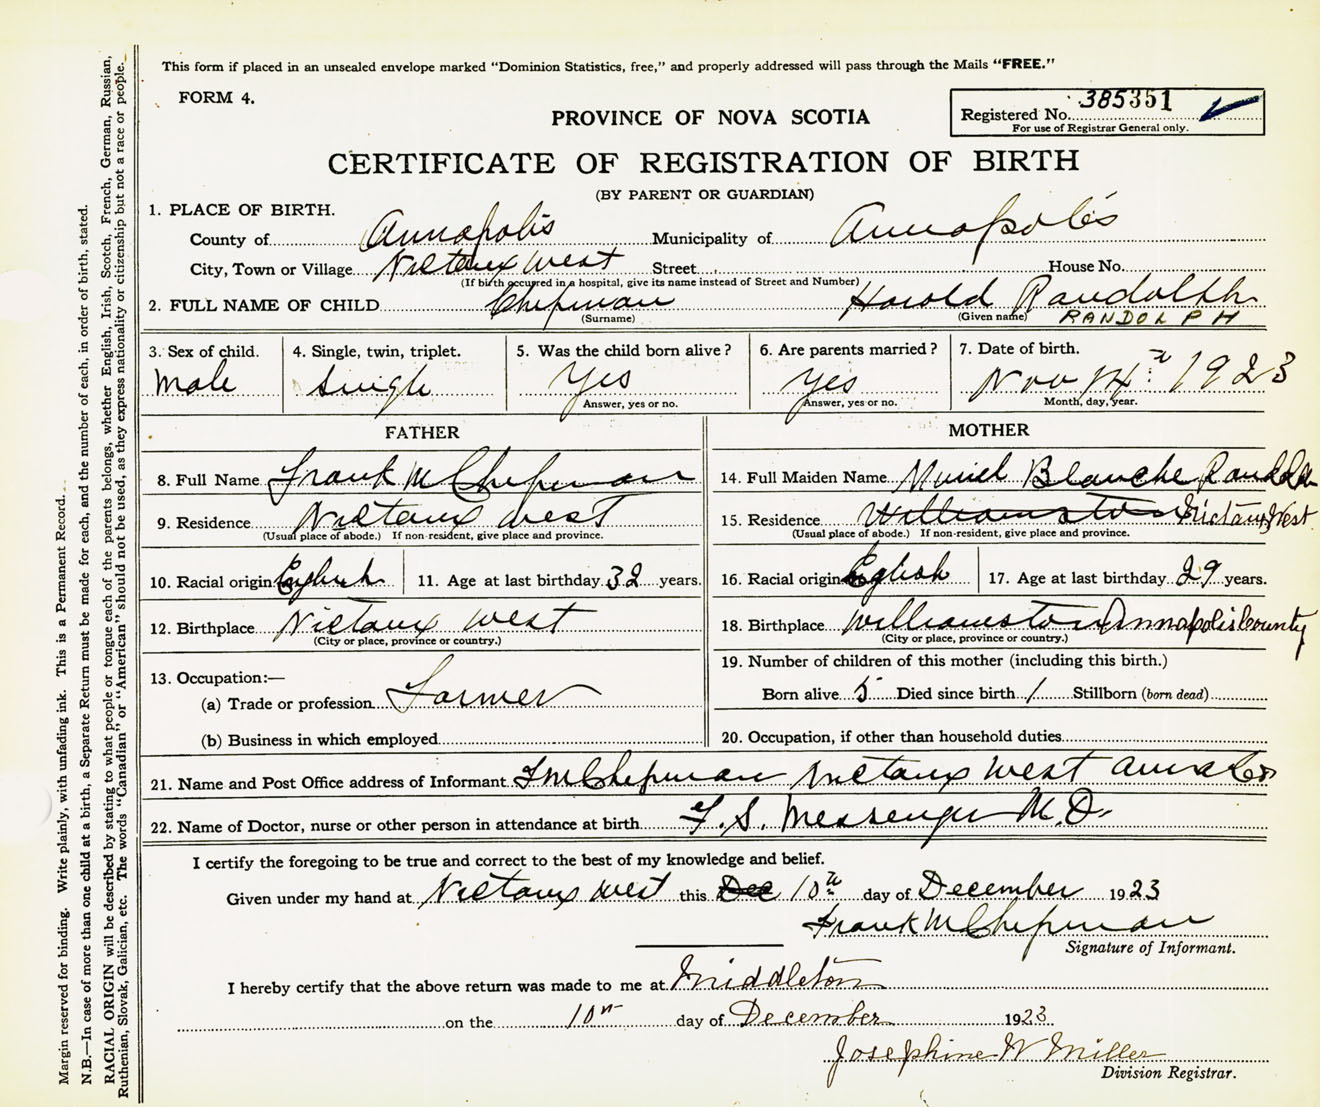 This form if placed in an unsealed envelope marked "Dominion Statistics, free," and properly addressed will pass through the Mails "FREE."
FORM 4.
Registered No. 385351
For use of Registrar General only.
PROVINCE OF NOVA SCOTIA
CERTIFICATE OF REGISTRATION OF BIRTH
(BY PARENT OR GUARDIAN)
1. PLACE OF BIRTH.
County of Annapolis Municipality of Annapolis
City, Town or Village Nictaux West Street House No.
(If birth occurred in a hospital, give its name instead of Street and Number)
2. FULL NAME OF CHILD Chipman Harold Randolph
(Surname) (Given name) RANDOLPH
3. Sex of child. 4. Single, twin, triplet. 5. Was the child born alive? 6. Are parents married? 7. Date of birth.
Male Single Yes Yes Nov 14th 1923
Answer, yes or no. Answer, yes or no. Month, day, year.
FATHER MOTHER
8. Full Name Frank M Chipman 14. Full Maiden Name Muriel Blanche Randolph
9. Residence Nictaux West 15. Residence Williamston Nictaux West
(Usual place of abode.) If non-resident, give place and province. (Usual place of abode.) If non-resident, give place and province.
10. Racial origin English 11. Age at last birthday 32 years. 16. Racial origin English 17. Age at last birthday 29 years.
12. Birthplace Nictaux West 18. Birthplace Williamston Annapolis County
(City or place, province or country.) (City or place, province or country.)
13. Occupation:— 19. Number of children of this mother (including this birth.)
(a) Trade or profession Farmer Born alive 5 Died since birth 1 Stillborn (born dead)
(b) Business in which employed 20. Occupation, if other than household duties
21. Name and Post Office address of Informant F M Chipman Nictaux West Anna Co
22. Name of Doctor, nurse or other person in attendance at birth F. S. Messenger M.D.
I certify the foregoing to be true and correct to the best of my knowledge and belief.
Given under my hand at Nictaux West this Dec 10th day of December 1923
Frank M Chipman
Signature of Informant.
I hereby certify that the above return was made to me at Middleton
on the 10th day of December 1923
Josephine W Miller
Division Registrar.
Margin reserved for binding. Write plainly, with unfading ink. This is a Permanent Record.
N.B.—In case of more than one child at a birth, a Separate Return must be made for each, and the number of each, in order of birth, stated.
RACIAL ORIGIN will be described by stating to what people or tongue each of the parents belongs, whether English, Irish, Scotch, French, German, Russian,
Ruthenian, Slovak, Galician, etc. The words "Canadian" or "American" should not be used, as they express nationality or citizenship but not a race or people.